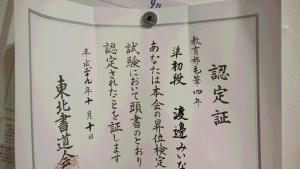 9月
認定証
教育部毛筆四年
準初段 渡邊みいな
あなたは本会の昇位検定
試験において頭書のとおり
認定されたことを証します
平成十九年十月十日
東北書道会